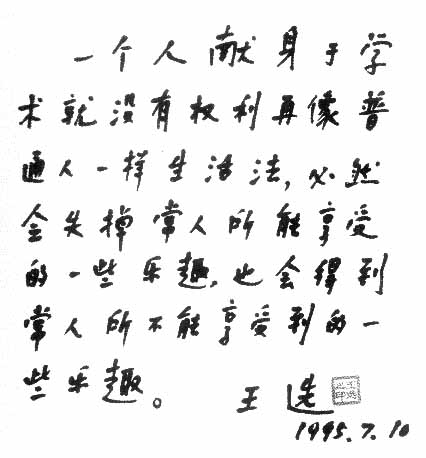 一个人献身于学
术就没有权利再像普
通人一样生活法，必然
会失掉常人所能享受
的一些乐趣，也会得到
常人所不能享受到的一
些乐趣。 王选
1995.7.10